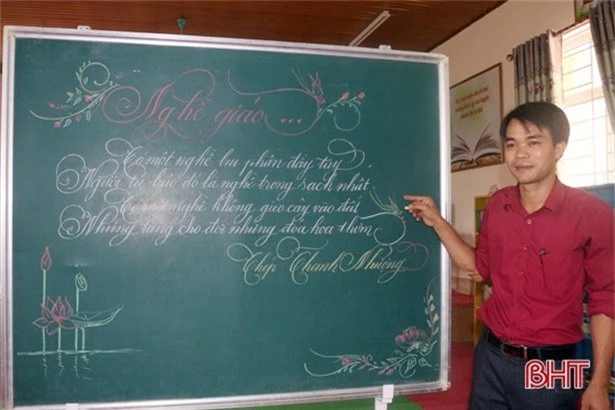 Nghề giáo ...
Có một nghề bụi phấn đầy tay
Người ta bảo đó là nghề trong sạch nhất
Có một nghề không gieo cây vào đất
Nhưng từng cho đời những đóa hoa thơm
Chép Thanh Nhường
BHT
BHT